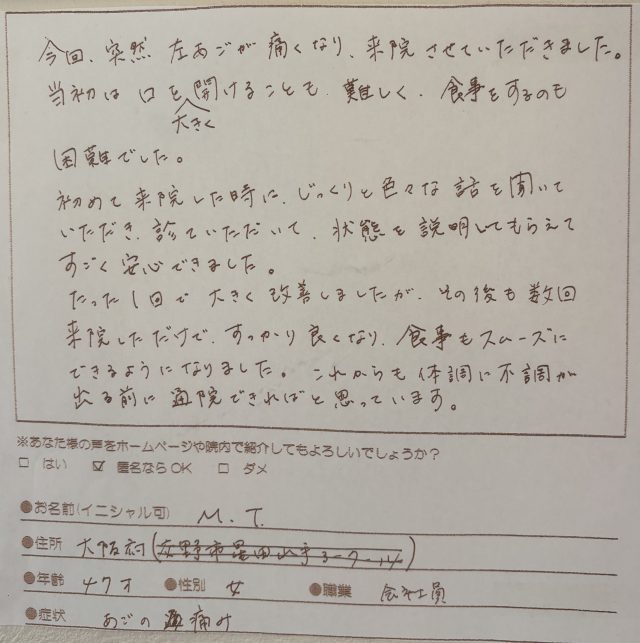 今回、突然 左あごが痛くなり、来院させていただきました。
当初は 口を大きく開けることも、難しく、食事をするのも
困難でした。
初めて来院した時に、じっくりと色々な話を聞いて
いただき、診ていただいて、状態を説明してもらえて
すごく安心できました。
たった1回で大きく改善しましたが、その後も数回
来院しただけで、すっかり良くなり、食事もスムーズに
できるようになりました。これからも体調に不調が
出る前に通院できればと思っています。
※あなた様の声をホームページや院内で紹介してもよろしいでしょうか?
□ はい ☑ 匿名ならOK □ ダメ
●お名前(イニシャル可) M.T.
●住所 大阪府
●年齢 47才 ●性別 女 ●職業 会社員
●症状 あごの痛み